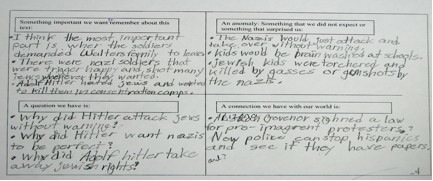 Something important we want to remember about this text:
• I think the most important
part is when the soldiers
demanded Walters family to leave
• There were nazi soldiers that
were trigger happy and shot many
Jews whenever they wanted.
• Adolf Hitler hated jews and wanted
to kill them in concentration camps.
An anomaly: Something that we did not expect or something that surprised us:
• The Nazis would just attack and
take over without warning.
• Kids would be brain washed at schools.
• Jewish kids were torchered and
killed by gasses or gunshots by
the nazis.
A question we have is:
• Why did Hitler attack jews
without warning?
• Why did Hitler want nazis
to be perfect?
• Why did Adolf hitler take
away jewish rights?
A connection we have with our world is:
governor sighned a law
for pro-imagrent protesters?
Now police can stop hispanics
and see if they have papers.